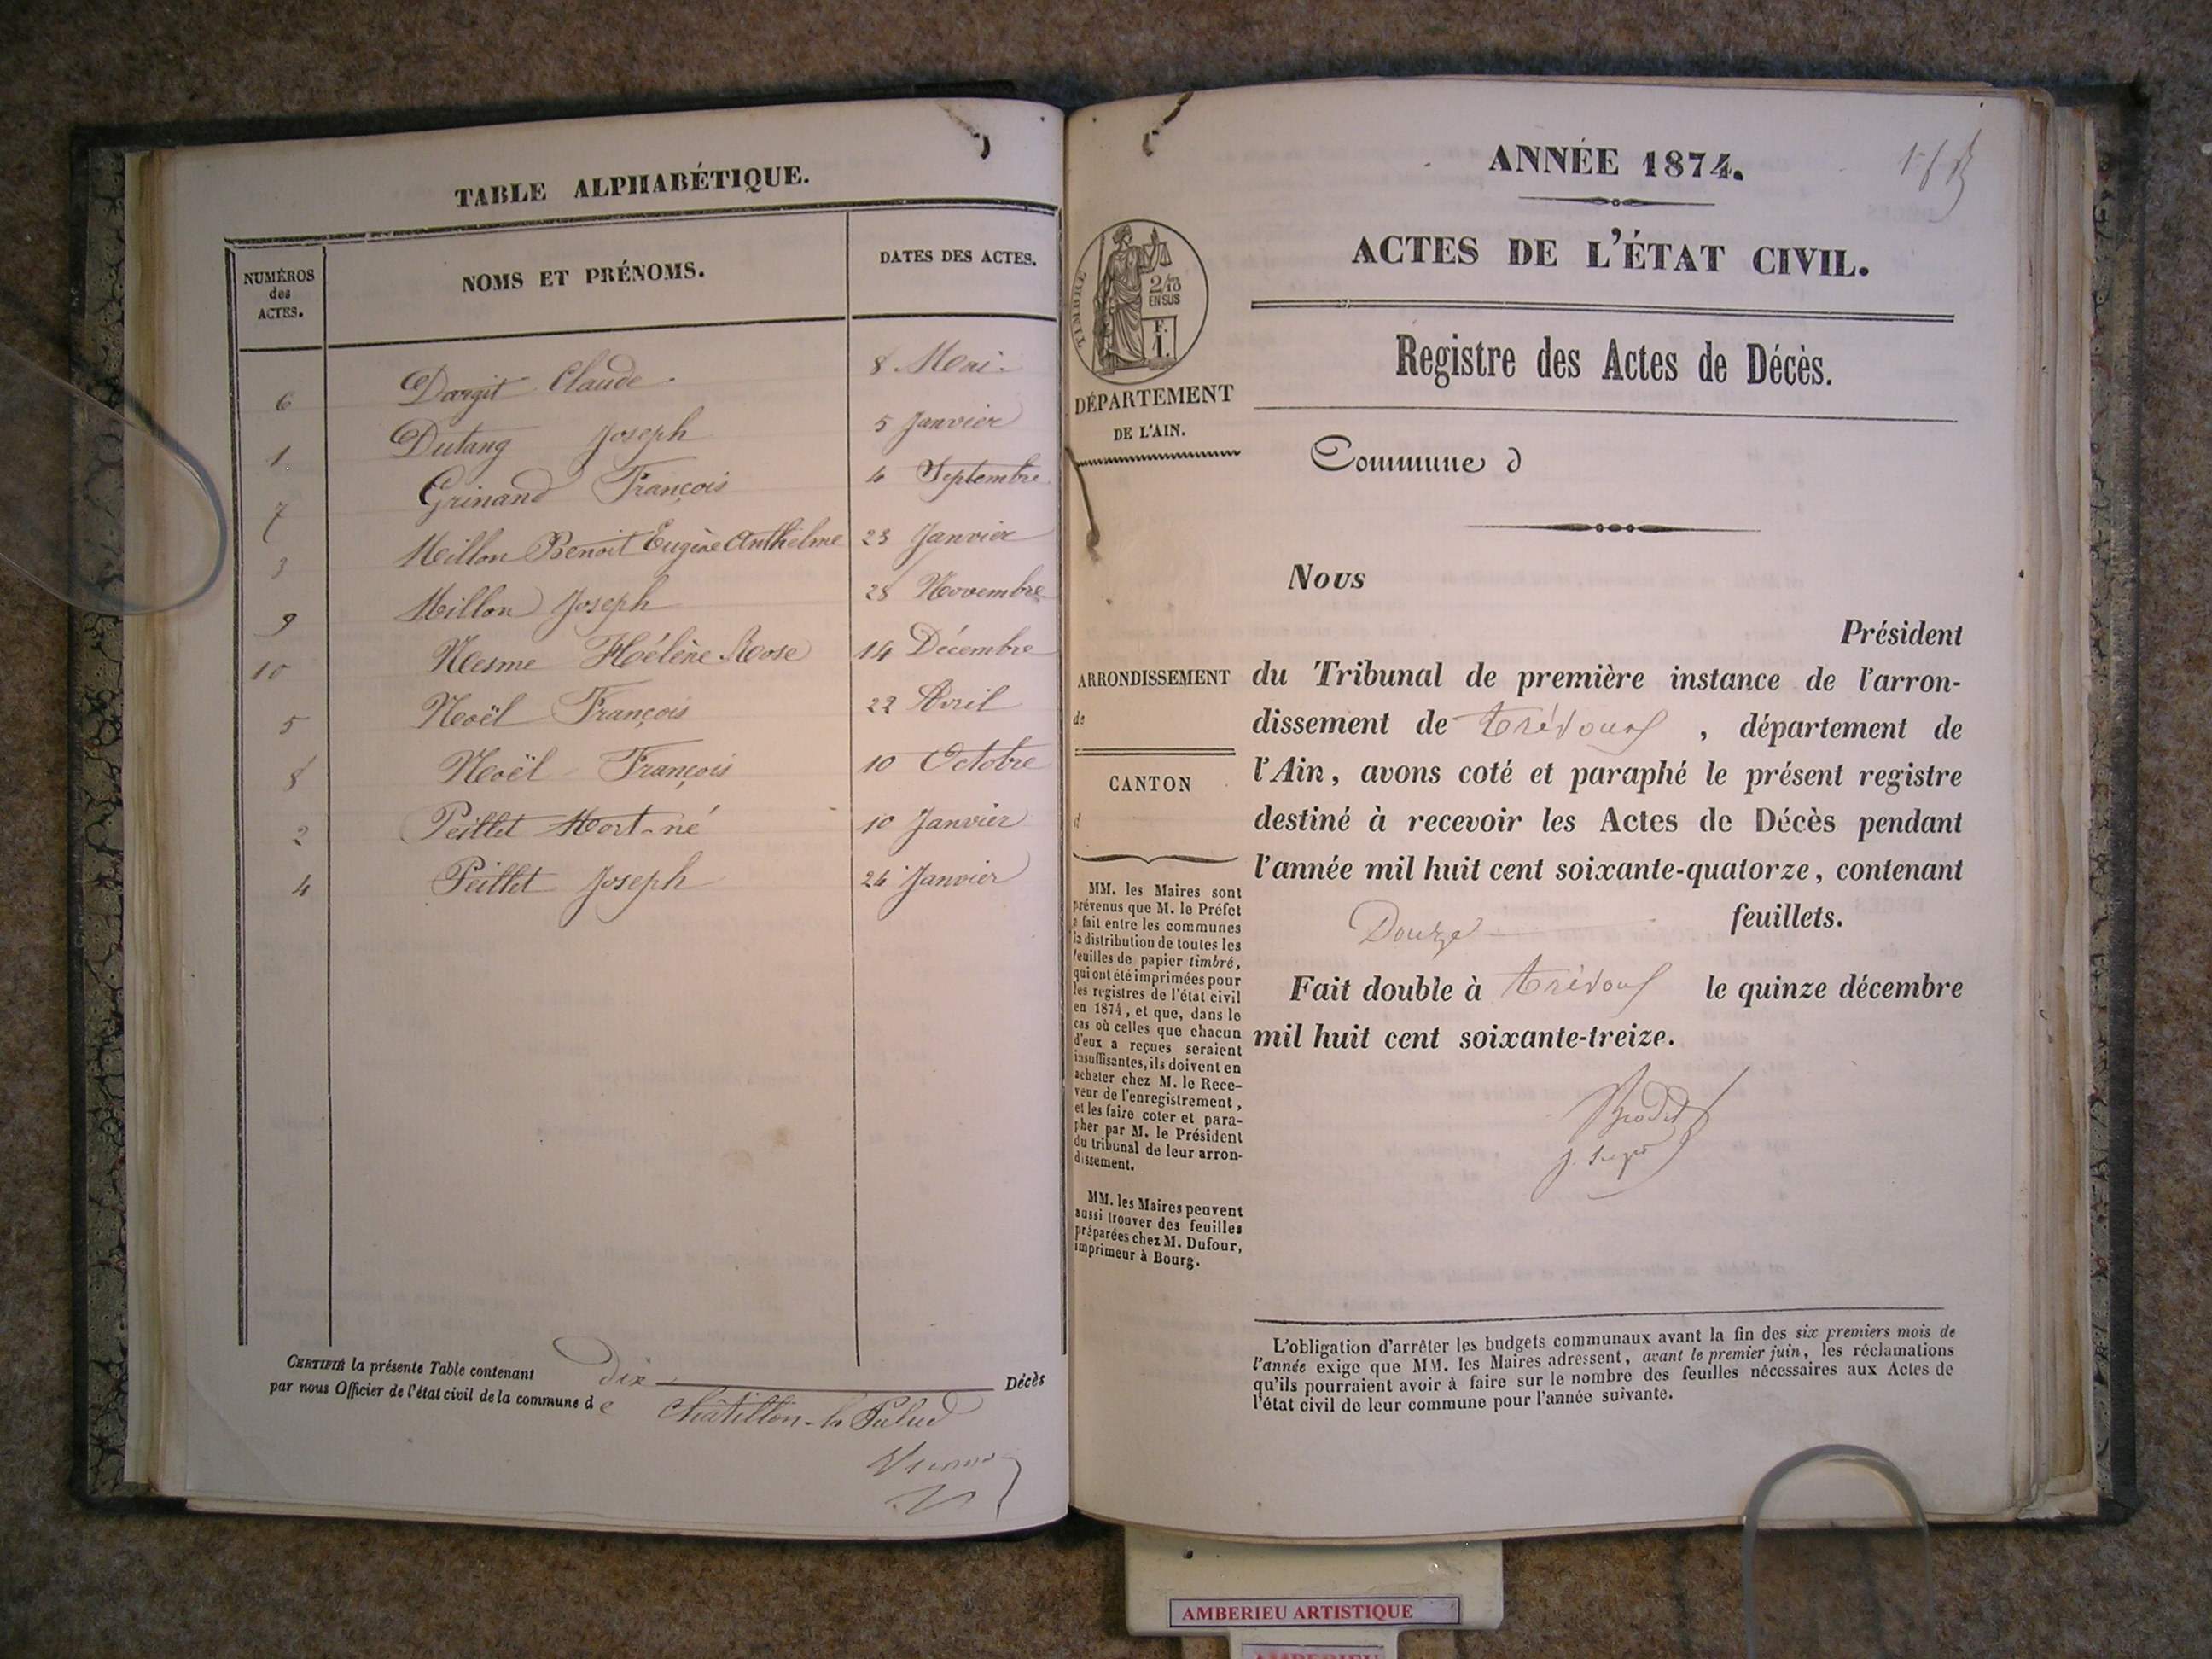 TABLE ALPHABÉTIQUE.
NUMÉROS des ACTES.
NOMS ET PRÉNOMS.
DATES DES ACTES.
6 Dargit Claude. 8 Mai.
1 Dutang Joseph 5 Janvier
7 Grinand François 4 Septembre
3 Millon Benoit Eugène Anthelme 23 Janvier
9 Millon Joseph 28 Novembre
10 Nesme Hélène Rose 14 Décembre
5 Noël François 22 Avril
8 Noël François 10 Octobre
2 Peillet Mort-né 10 Janvier
4 Peillet Joseph 24 Janvier
CERTIFIÉ la présente Table contenant dix Décès
par nous Officier de l'état civil de la commune de Châtillon-la Palud
ANNÉE 1874.
ACTES DE L'ÉTAT CIVIL.
Registre des Actes de Décès.
TIMBRE
2/13
EN SUS
F.
1.
DÉPARTEMENT
DE L'AIN.
Commune d
Nous
Président
du Tribunal de première instance de l'arron-
dissement de Trévoux, département de
l'Ain, avons coté et paraphé le présent registre
destiné à recevoir les Actes de Décès pendant
l'année mil huit cent soixante-quatorze, contenant
Douze feuillets.
Fait double à Trévoux le quinze décembre
mil huit cent soixante-treize.
ARRONDISSEMENT
de
CANTON
d
MM. les Maires sont
prévenus que M. le Préfet
a fait entre les communes
la distribution de toutes les
feuilles de papier timbré,
qui ont été imprimées pour
les registres de l'état civil
en 1874, et que, dans le
cas où celles que chacun
d'eux a reçues seraient
insuffisantes, ils doivent en
acheter chez M. le Rece-
veur de l'enregistrement,
et les faire coter et para-
pher par M. le Président
du tribunal de leur arron-
dissement.
MM. les Maires peuvent
aussi trouver des feuilles
préparées chez M. Dufour,
imprimeur à Bourg.
L'obligation d'arrêter les budgets communaux avant la fin des six premiers mois de
l'année exige que MM. les Maires adressent, avant le premier juin, les réclamations
qu'ils pourraient avoir à faire sur le nombre des feuilles nécessaires aux Actes de
l'état civil de leur commune pour l'année suivante.
AMBERIEU ARTISTIQUE
AMBERIEU